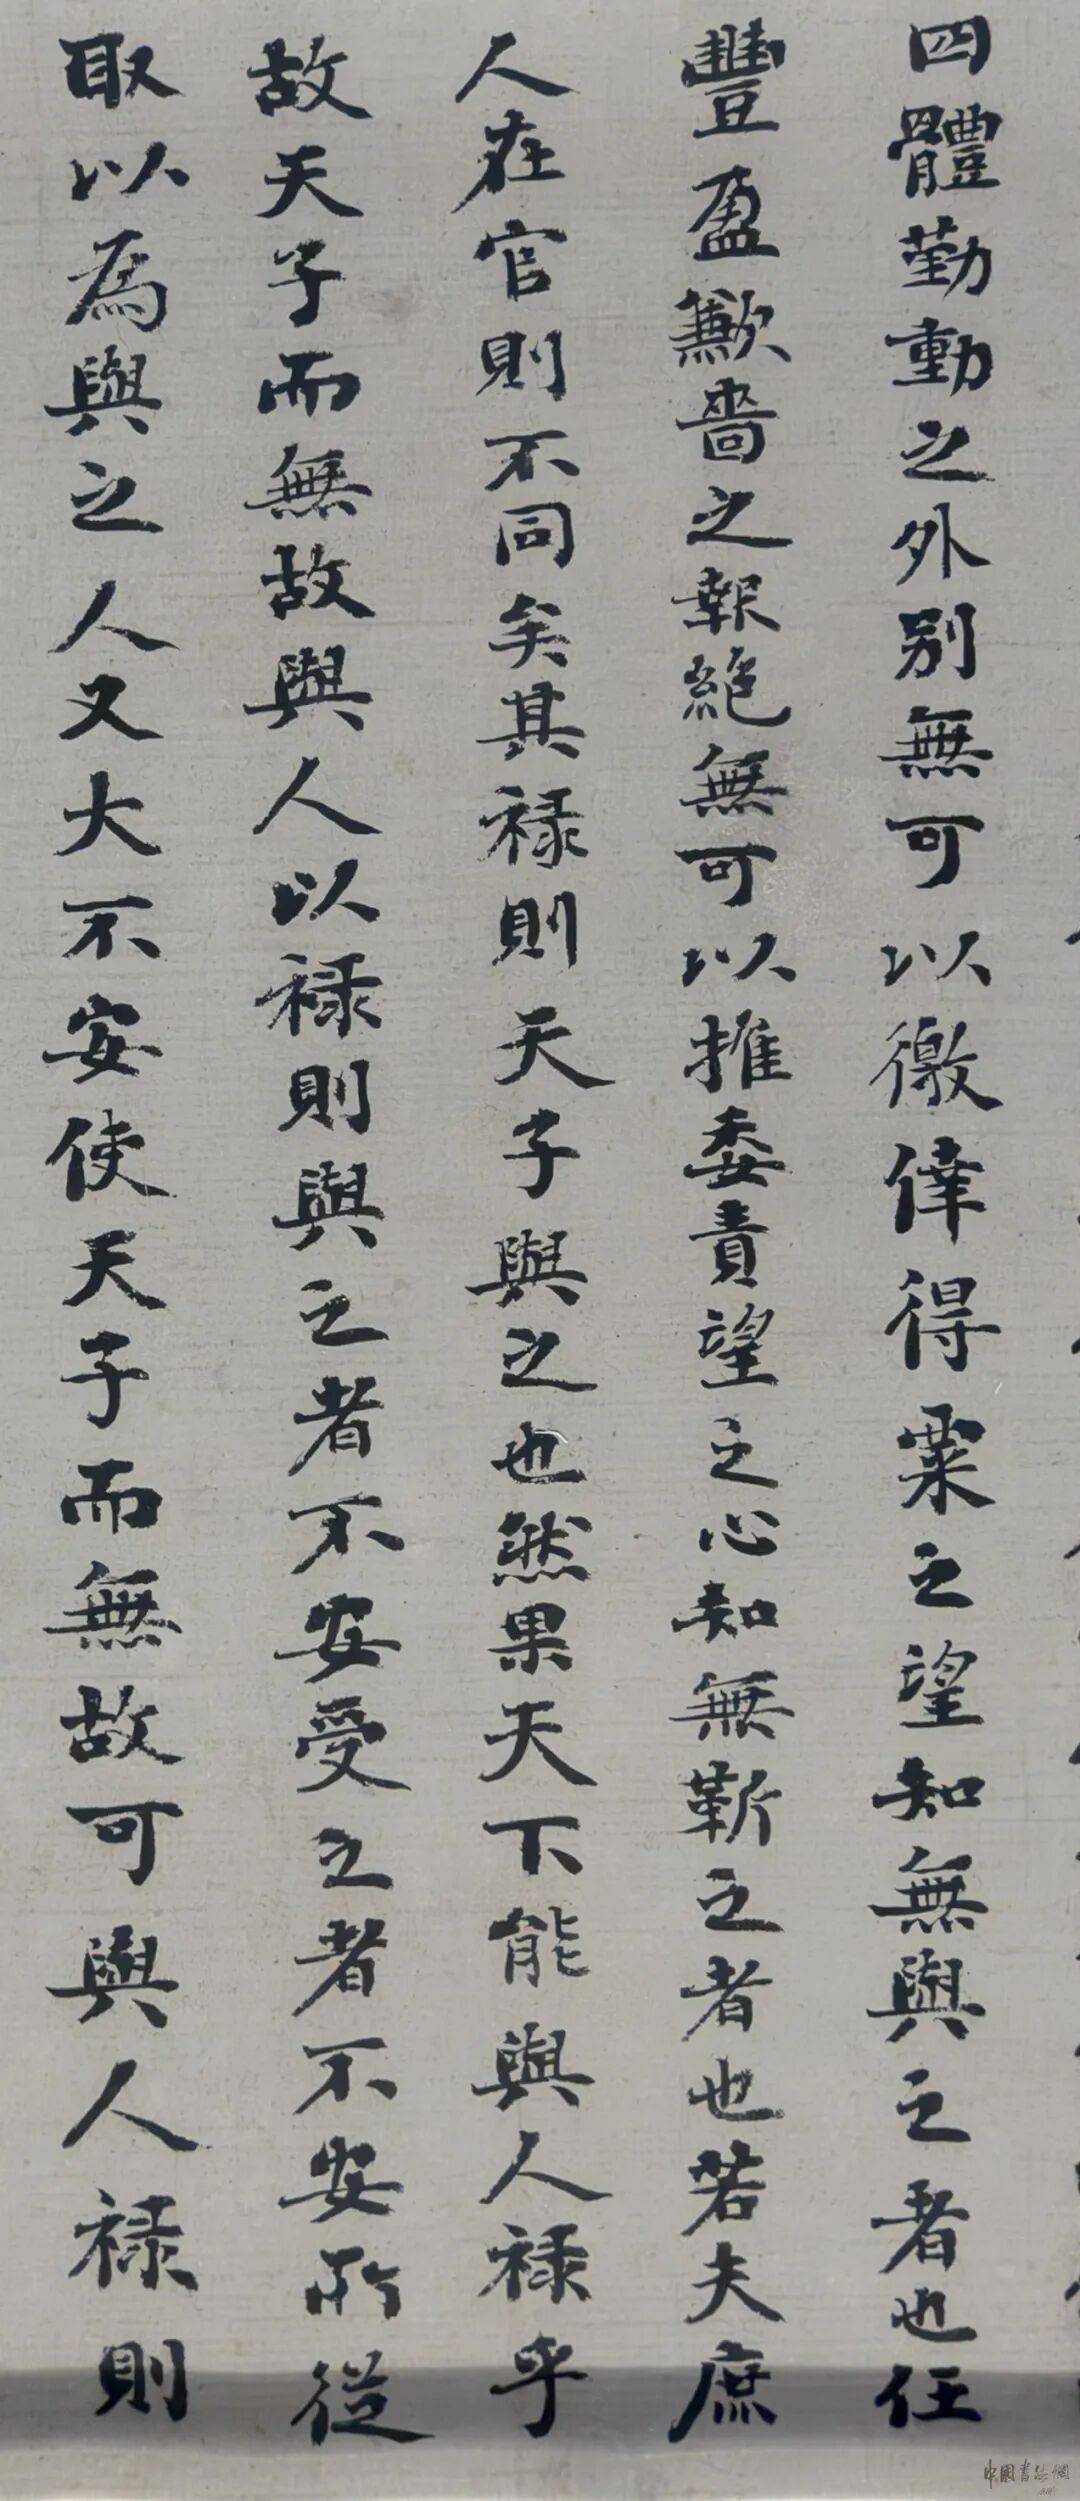 四體勤動之外別無可以徼倖得粟之望知無與之者也任
豐盈歉嗇之報絕無可以推委責望之心知無靳之者也若夫庶
人在官則不同矣其祿則天子與之也然果天下能與人祿乎
故天子而無故與人以祿則與之者不安受之者不安所從
取以為與之人又大不安使天子而無故可與人祿則
中國書法網